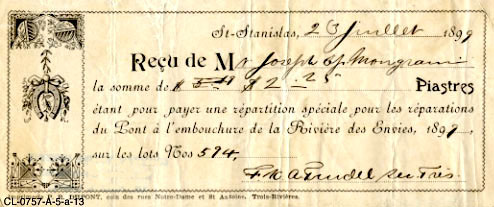 St-Stanislas, 23 Juillet 1899
Reçu de Mr Joseph Mongrain
la somme de $ $2.25 Piastres
étant pour payer une répartition spéciale pour les réparations
du Pont à l'embouchure de la Rivière des Envies, 1899,
sur les lots Nos 594,
Trudel Sec Trés
R. DUPONT, coin des rues Notre-Dame et St Antoine, Trois-Rivières.
CL-0757-A-5-a-13